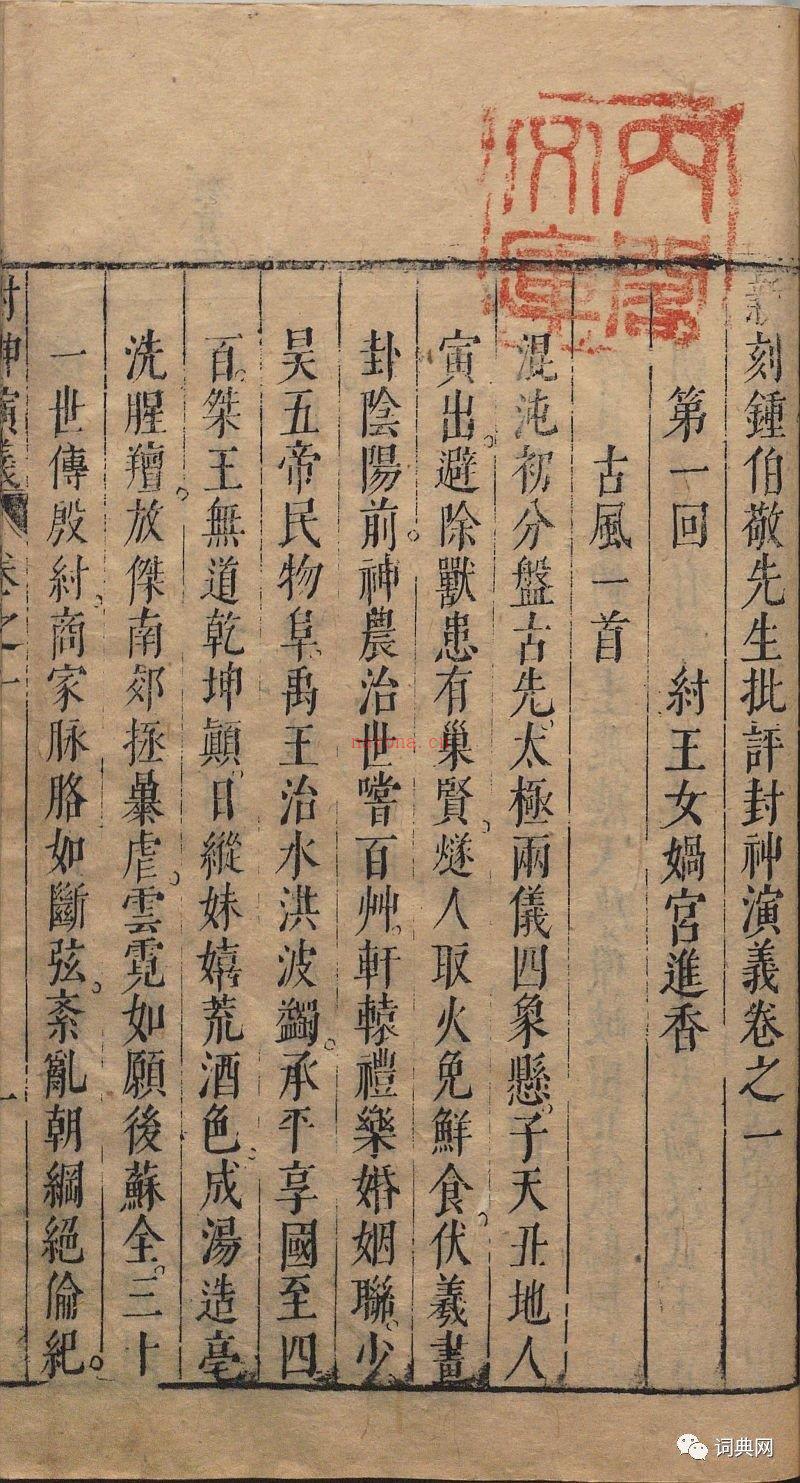 新刻鍾伯敬先生批評封神演義卷之一
第一回 紂王女媧宮進香
古風一首
混沌初分盤古先太極兩儀四象懸子天丑地人
寅出避除獸患有巢賢燧人取火免鮮食伏羲畫
卦陰陽前神農治世嚐百艸軒轅禮樂婚姻聯少
昊五帝民物阜禹王治水洪波蠲承平享國至四
百桀王無道乾坤顛日縱妹嬉荒酒色成湯造亳
洗腥羶放傑南郊拯暴虐雲霓如願後蘇全三十
一世傳殷紂商家脉胳如斷弦紊亂朝綱絕倫紀
封神演義 卷之一 一
內閣文庫
nayona.cn
词典网